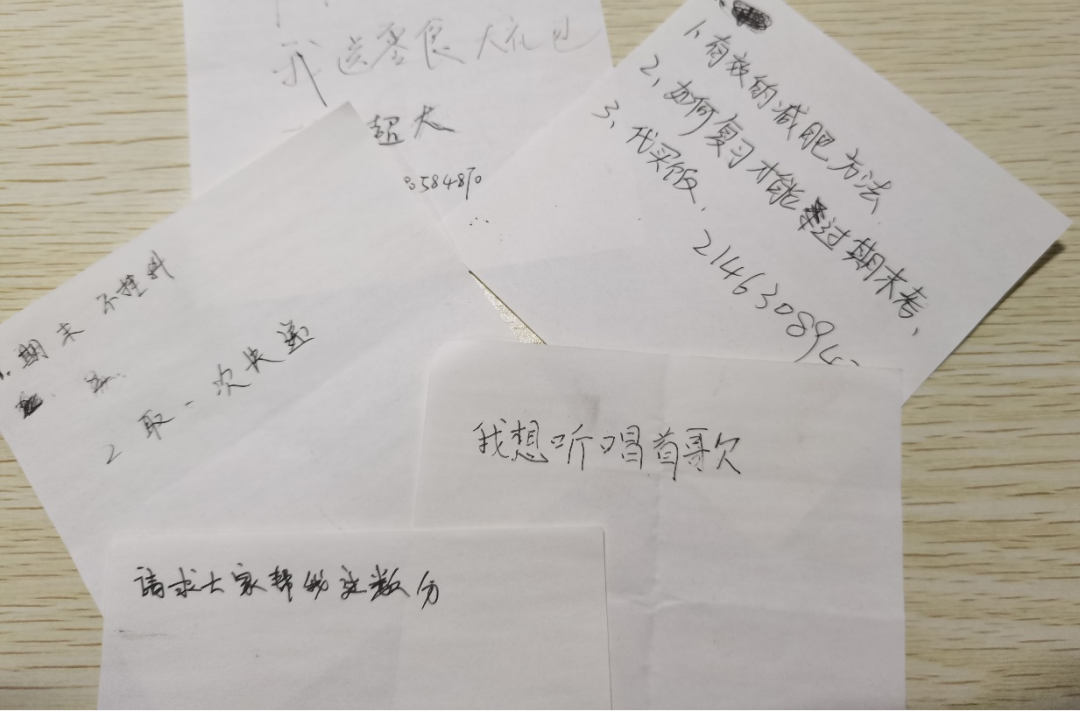 我送零食大礼包
超大
584870
1、有效的减肥方法
2、如何复习才能过期末考，
3、代买饭.
214630894
1. 期末不挂科
2 取一次快递
我想听唱首歌
请求大家帮我
数分